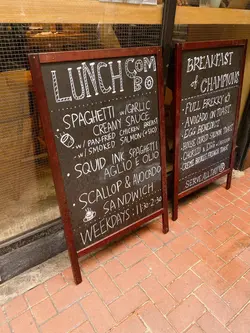 LUNCH COM
BO
SPAGHETTI W/ GARLIC
CREAMY SAUCE
W/ PAN FRIED CHICKEN BREAST
W/ SMOKED SALMON (+$20)
SQUID INK SPAGHETTI
AGLIO E OLIO
SCALLOP & AVOCADO
SANDWICH
WEEKDAYS: 11:30-2:30
BREAKFAST
of CHAMPIONS
FULL BREKKY
AVOCADO ON TOAST
EGG BENEDICT
CRÈME BRÛLÉE FRENCH TOAST
SERVE ALL DAY